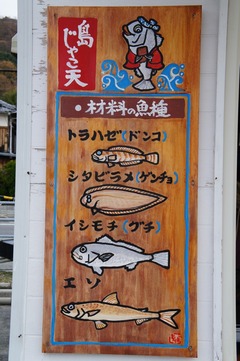 島
じゃこ天
●材料の魚種
トラハゼ(ドンコ)
シタビラメ(ゲンチョ)
イシモチ(グチ)
エソ